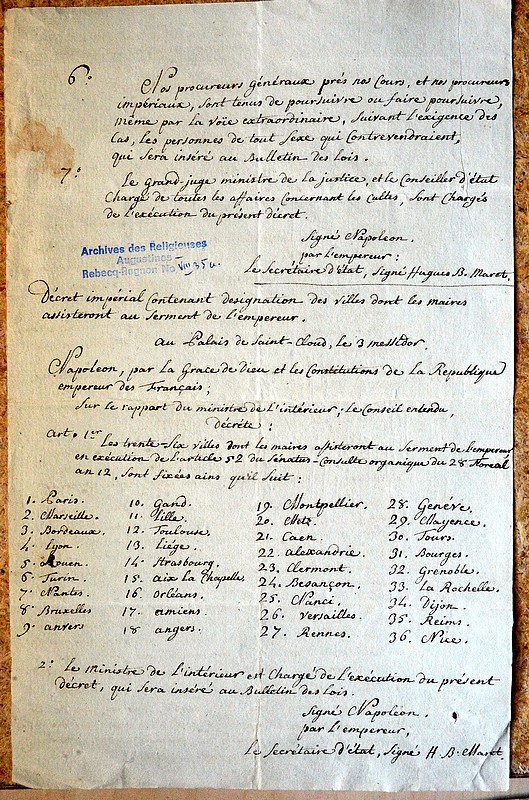 6.°
Nos procureurs généraux près nos Cours, et nos procureurs
impériaux, sont tenus de poursuivre ou faire poursuivre,
même par la voie extraordinaire, suivant l'exigence des
cas, les personnes de tout sexe qui contrevendraient,
qui sera inséré au Bulletin des Lois.
7.°
Le Grand-juge ministre de la justice, et le Conseiller d'état
Chargé de toutes les affaires concernant les cultes, sont Chargés
de l'exécution du présent décret.
Signé Napoleon.
par l'empereur:
Archives des Religieuses
Augustines
Rebecq-Rognon No VIII 35 a.
Le Secrétaire d'état, Signé Hugues B. Maret.
Décret impérial contenant designation des villes dont les maires
assisteront au Serment de l'empereur.
au Palais de Saint-Cloud, le 3 messidor.
Napoleon, par la Grace de Dieu et les Constitutions de la Republique
empereur des Français;
Sur le rapport du ministre de l'intérieur; le Conseil entendu,
décrète:
art. 1er
Les trente-Six villes dont les maires assisteront au Serment de l'empereur
en exécution de l'article 52 du Senatus-Consulte organique du 28 floreal
an 12, sont fixées ainsi qu'il suit:
1. Paris.
2. Marseille.
3. Bordeaux.
4. Lyon.
5. Rouen.
6. Turin
7. Nantes.
8. Bruxelles
9. anvers
10. Gand.
11. Lille.
12. Toulouse.
13. Liége.
14. Strasbourg.
15. aix La Chapelle.
16. Orléans.
17. amiens.
18. angers.
19. Montpellier.
20. Metz.
21. Caen.
22. alexandrie.
23. Clermont.
24. Besançon.
25. Nanci.
26. versailles.
27. Rennes.
28. Genéve.
29. Mayence.
30. Tours.
31. Bourges.
32. Grenoble.
33. La Rochelle.
34. Dijon.
35. Reims.
36. Nice.
2.° Le ministre de l'intérieur est Chargé de l'exécution du présent
décret, qui sera inséré au Bulletin des Lois.
Signé Napoléon.
par L'empereur,
Le Secrétaire d'état, Signé H. B. Maret.